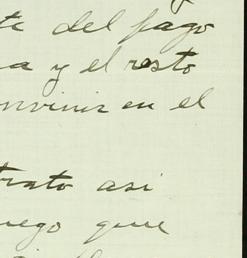 te del pago
a y el resto
onvinir en el
trato asi
uego que